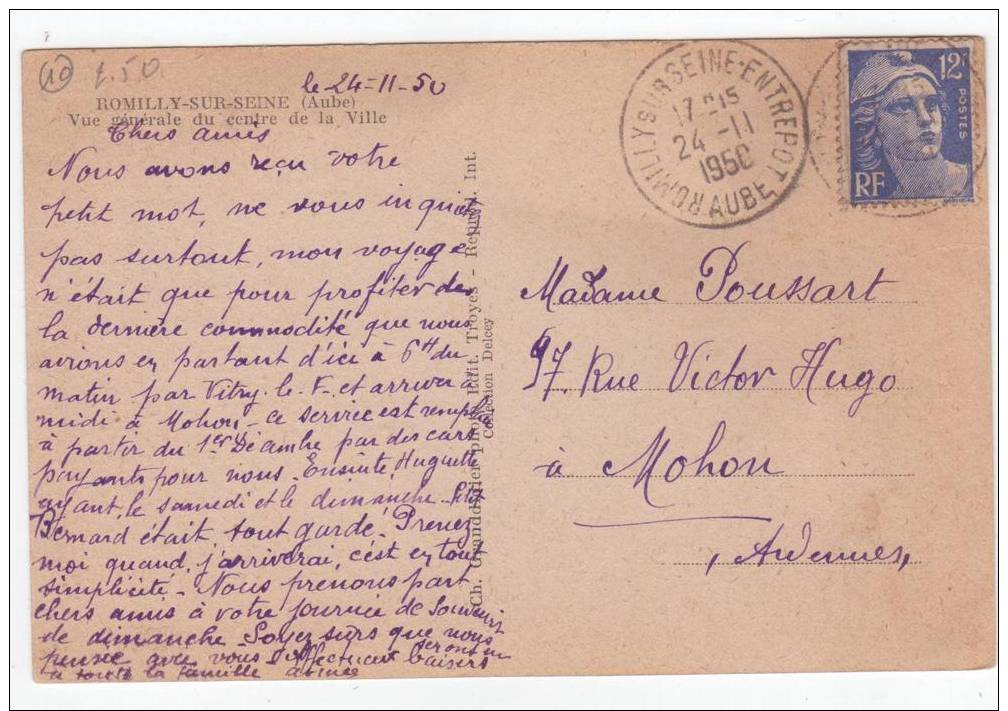 10 1.50
le 24-11-50
ROMILLY-SUR-SEINE (Aube)
Vue générale du centre de la Ville
Chers amis
Nous avons reçu votre
petit mot, ne vous inquiétez
pas surtout, mon voyage
n'était que pour profiter de
la dernière commodité que nous
avions en partant d'ici à 6H du
matin par Vitry. le. F. et arriver à
midi à Mohon - ce service est remplacé
à partir du 1er Décembre par des cars
payants pour nous. Ensuite Huguette
ayant le samedi et le dimanche
Bernard était tout gardé. Prenez
moi quand j'arriverai, c'est en toute
simplicité - Nous prenons part
chers amis à votre journée de Souvenir
de dimanche Soyez sûrs que nous
serons en
pensée avec vous affectueux baisers
à toute la famille aimée
Ch. Granddidier phot. Edit. Troyes - Reprod. Int.
Collection Delcey
ROMILLY SUR SEINE-ENTREPOT
17 H15
24 -11
1950
AUBE
12F
POSTES
RF
Madame Poussart
97 Rue Victor Hugo
à Mohon
(Ardennes)